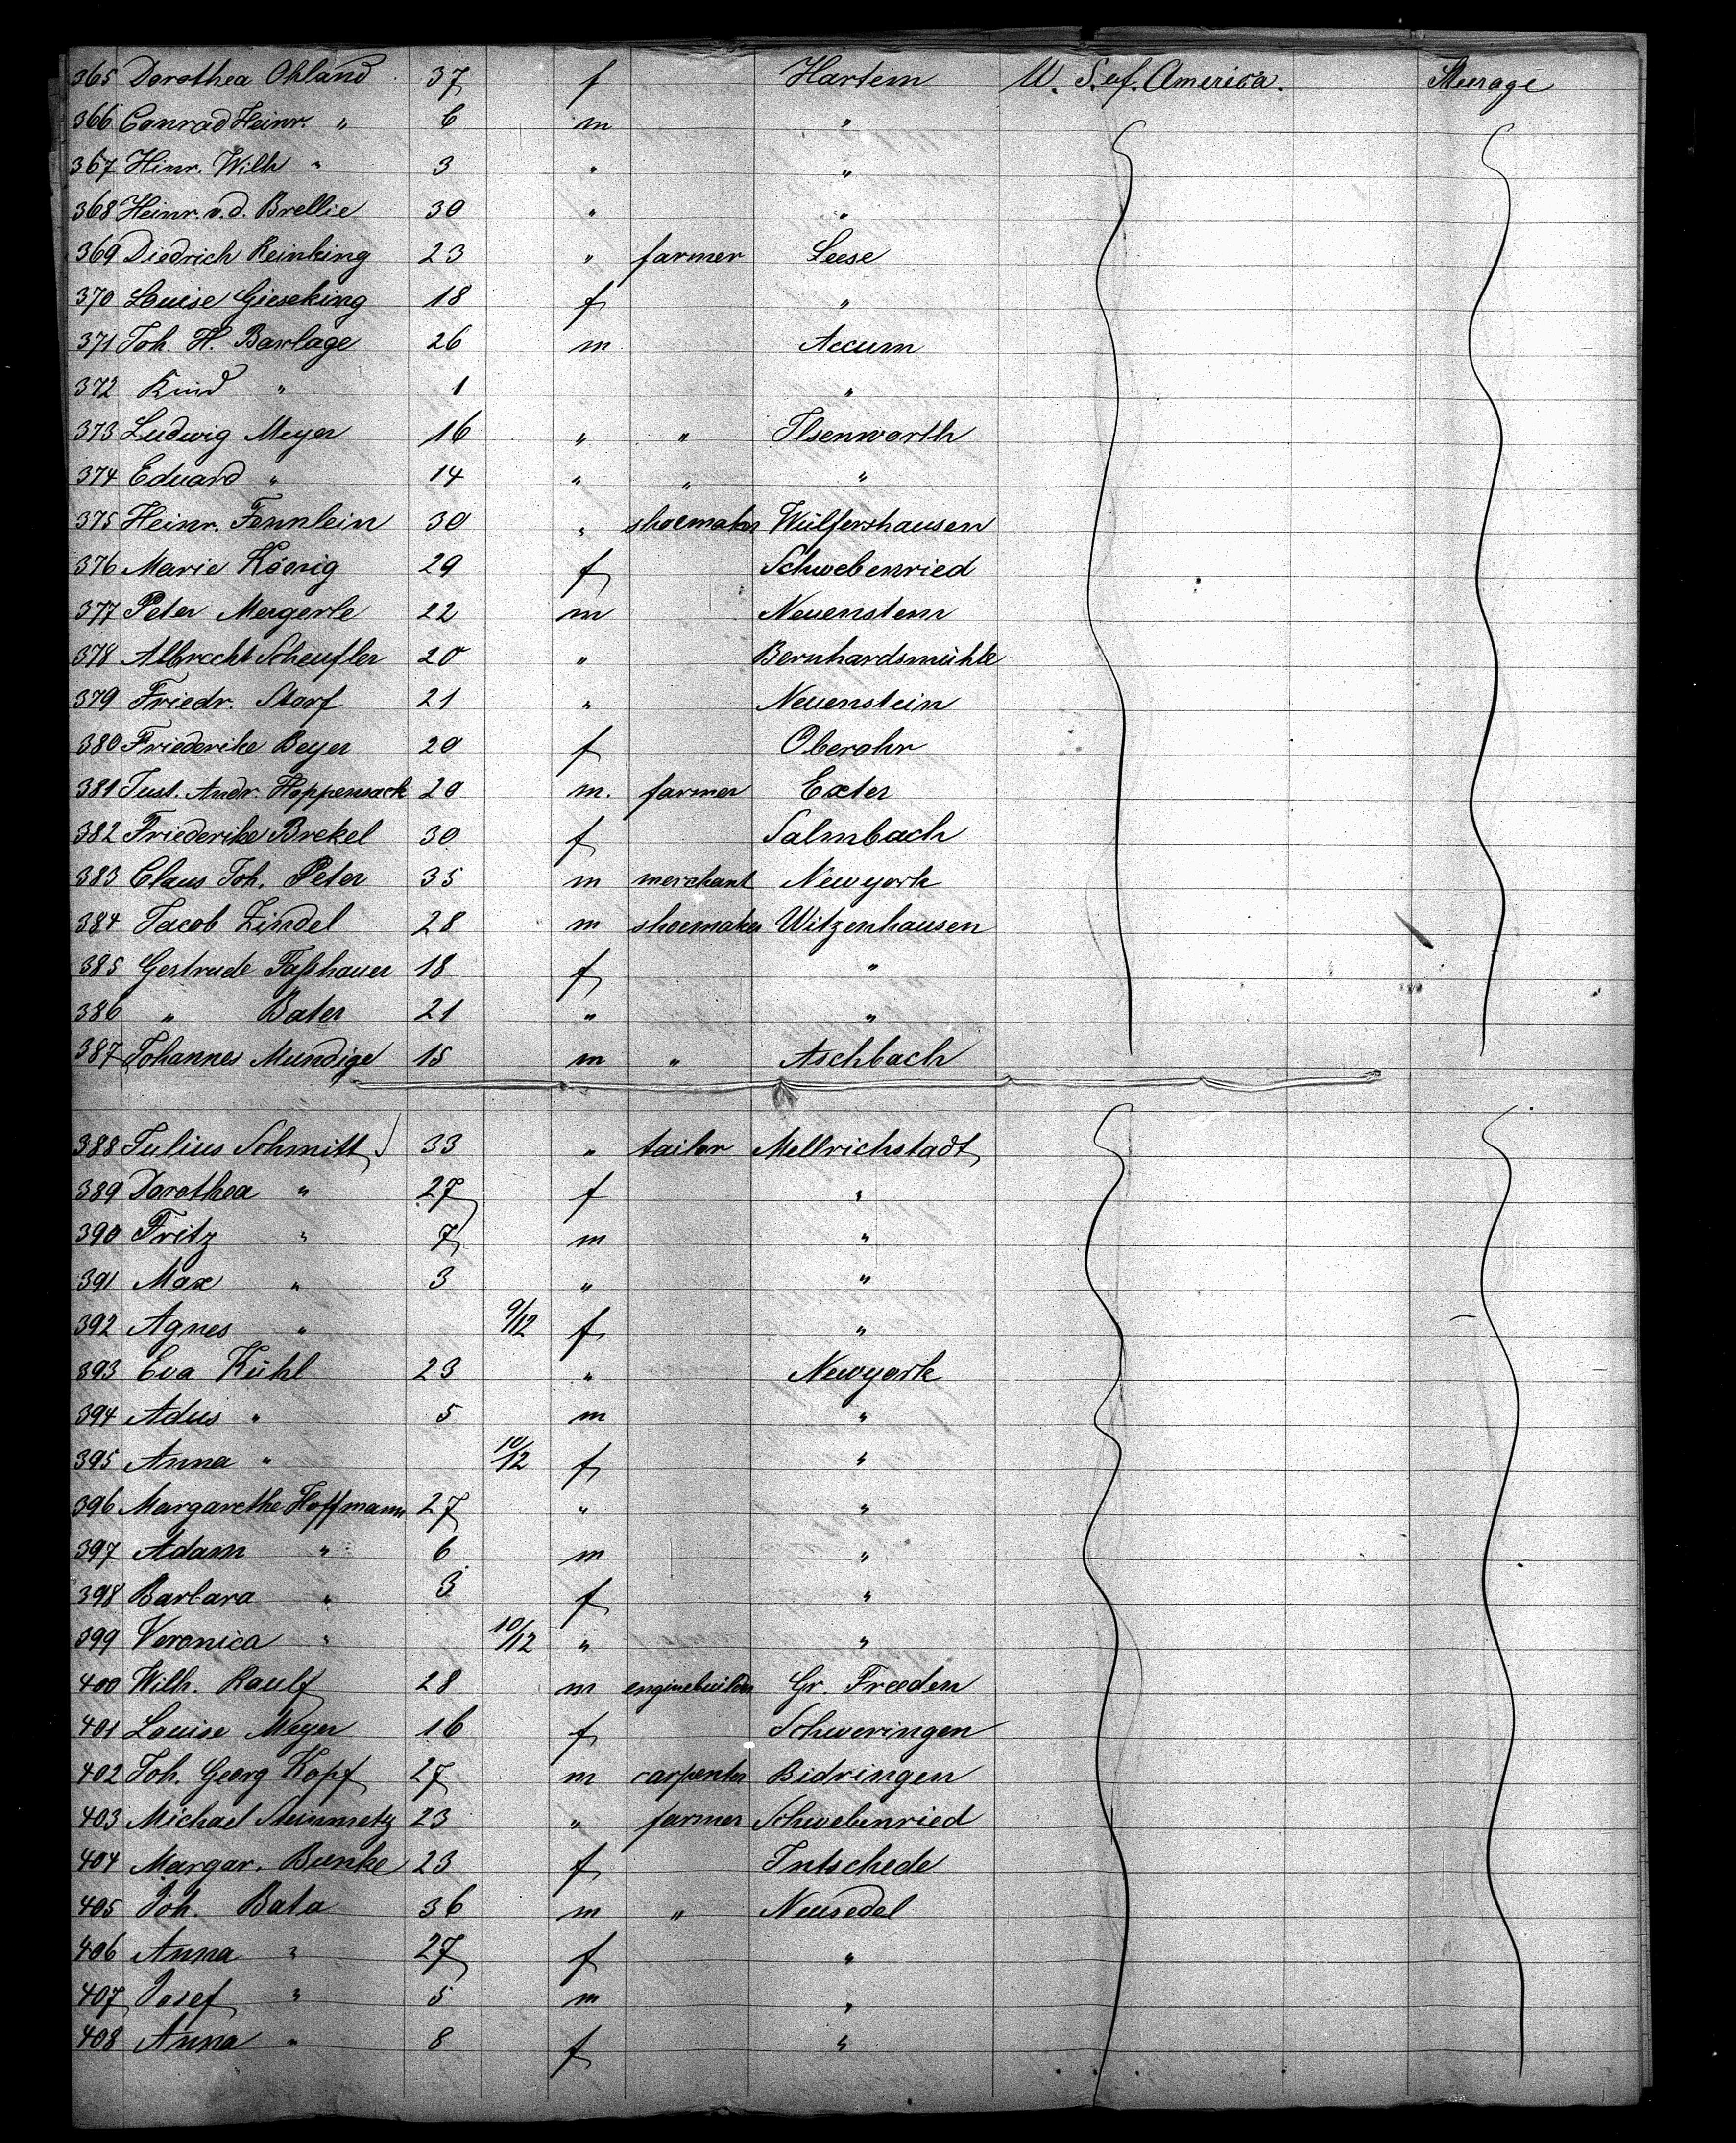 365 Dorothea Ohland 37 f Hartem U. S. of. America. Steerage
366 Conrad Heinr. " 6 m "
367 Hinr. Wilh " 3 " "
368 Heinr. v. d. Brellie 30 " "
369 Diedrich Reinking 23 " farmer Leese
370 Louise Gieseking 18 f "
371 Joh. H. Barlage 26 m Accum
372 Kind " 1 "
373 Ludwig Meyer 16 " " Ilsenworth
374 Eduard " 14 " " "
375 Heinr. Fennlein 30 " shoemaker Wülfershausen
376 Marie König 29 f Schwebenried
377 Peter Megerle 22 m Neuenstein
378 Albrecht Scheufler 20 " Bernhardsmühle
379 Friedr. Storf 21 " Neuenstein
380 Friederike Beyer 20 f Oberohr
381 Just. Andr. Hoppensack 20 m. farmer Exter
382 Friederike Brekel 30 f Salmbach
383 Claus Joh. Peter 35 m merchant Newyork
384 Jacob Zindel 28 m shoemaker Witzenhausen
385 Gertrude Faßhauer 18 f "
386 " Bater 21 " "
387 Johannes Mundige 15 m " Aschbach
388 Julius Schmitt 33 " tailor Mellrichstadt
389 Dorothea " 27 f "
390 Fritz " 7 m "
391 Max " 3 " "
392 Agnes " 9/12 f "
393 Eva Kühl 23 " Newyork
394 Adus " 5 m "
395 Anna " 10/12 f "
396 Margarethe Hoffmann 27 " "
397 Adam " 6 m "
398 Barbara " 3 f "
399 Veronica " 10/12 " "
400 Wilh. Raulf 28 m enginebuilder Gr. Freden
401 Louise Meyer 16 f Schweringen
402 Joh. Georg Kopf 27 m carpenter Bidringen
403 Michael Steinmetz 23 " farmer Schwebenried
404 Margar. Bunke 23 f Intschede
405 Joh. Bata 36 m " Neusedel
406 Anna " 27 f "
407 Josef " 5 m "
408 Anna " 8 f "